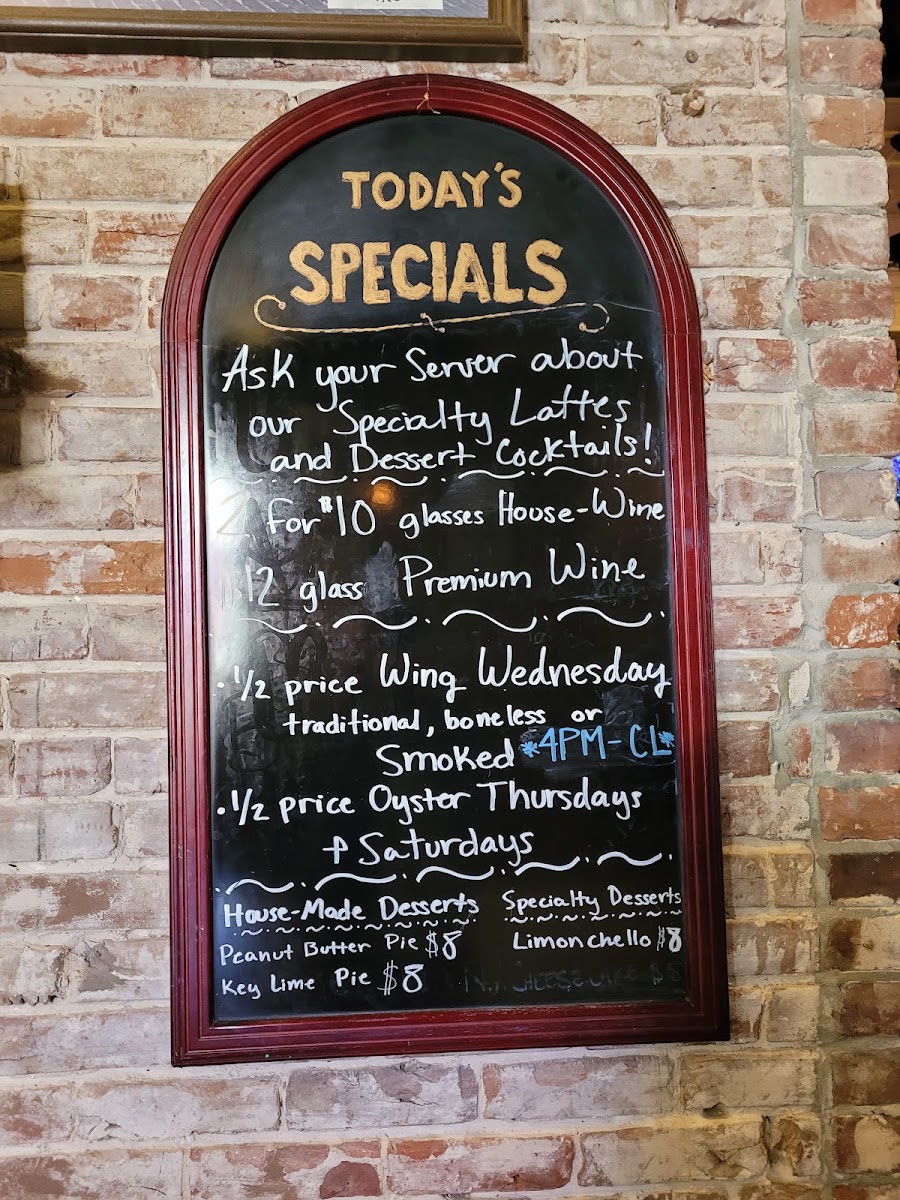 TODAY'S
SPECIALS
Ask your Server about
our Specialty Lattes
and Dessert Cocktails!
2 for $10 glasses House-Wine
12 glass Premium Wine
· 1/2 price Wing Wednesday
traditional, boneless or
Smoked *4PM-CL*
· 1/2 price Oyster Thursdays
+ Saturdays
House-Made Desserts
Peanut Butter Pie $8
Key Lime Pie $8
Specialty Desserts
Limonchello $8
CHEESECAKE